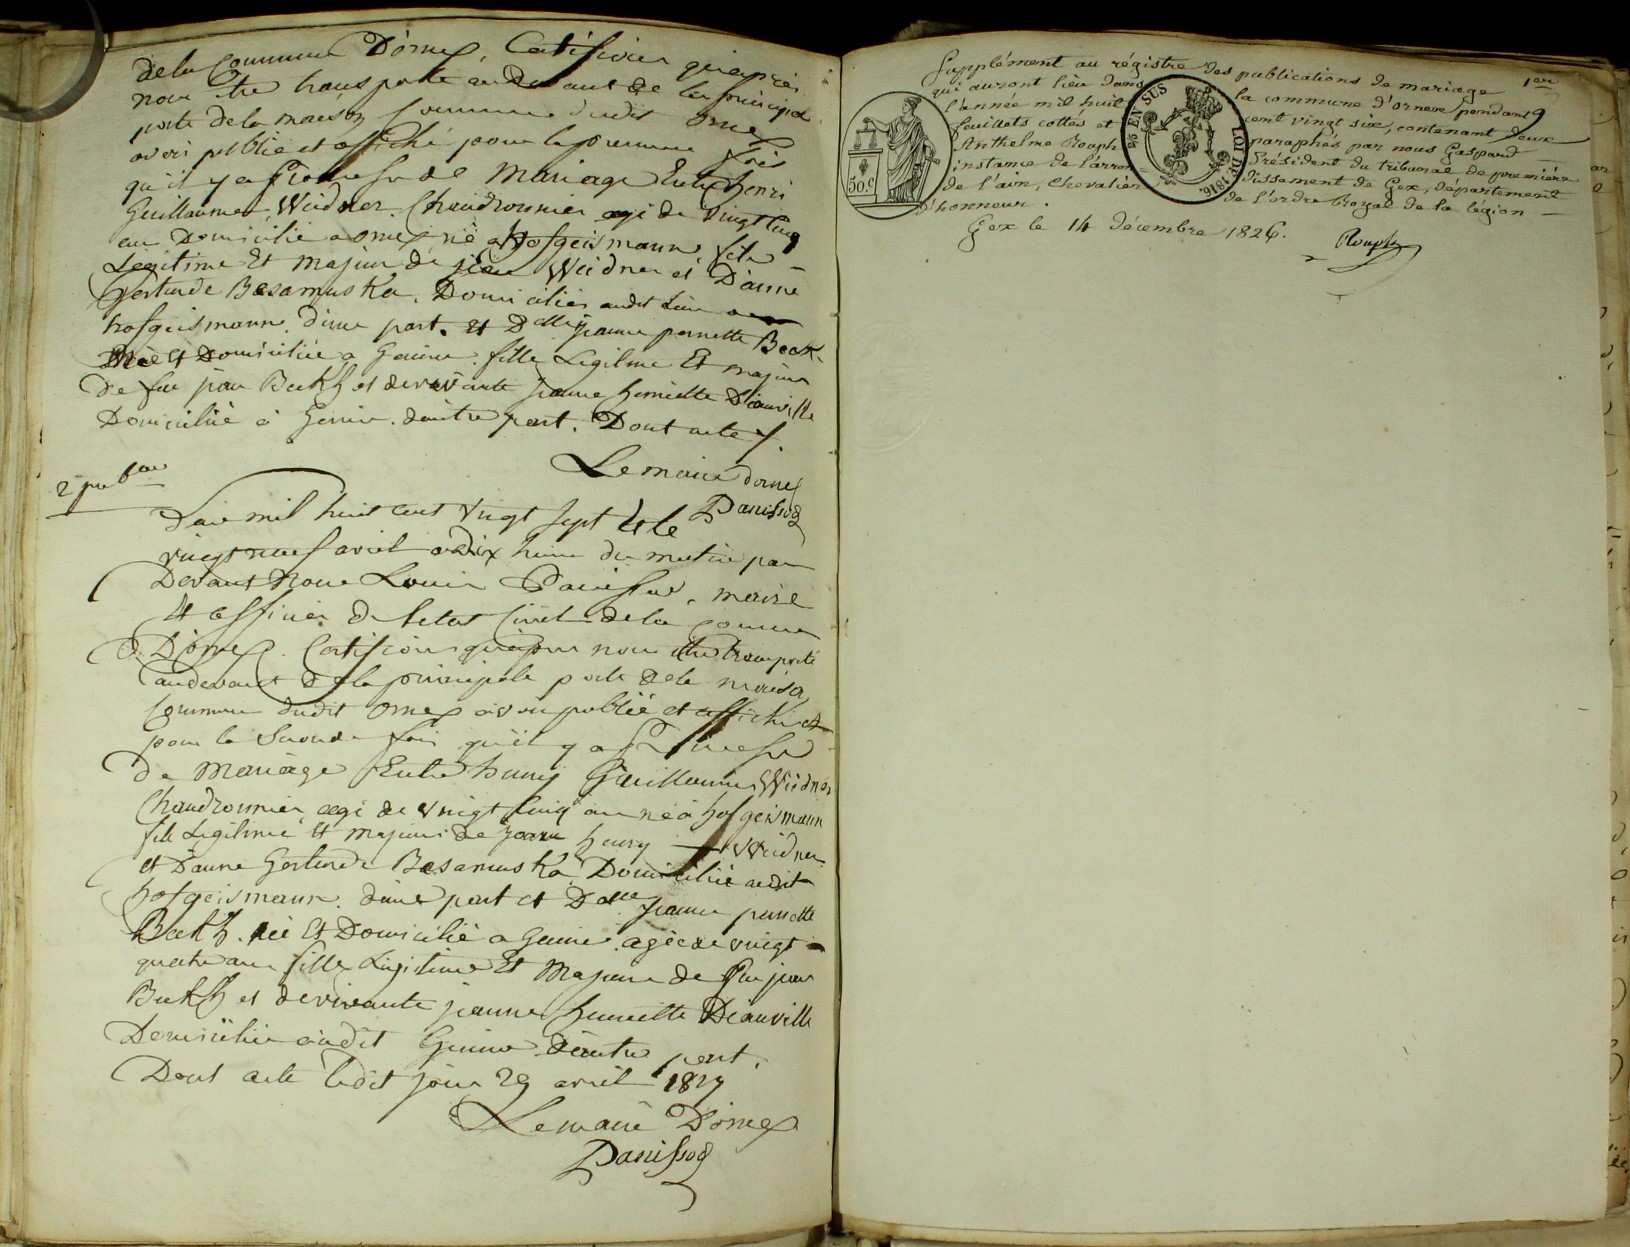 de la Commune D'ornex, Certifions qu'après
nous être transporté au devant de la principal
porte de la maison Commune dudit Ornex
avoir publié et affiché pour la premiere fois
qu'il y a Promesse de Mariage Entre henri
Guillaume Weidner Chaudronnier agé de Vingt Cinq
an Domicilié a ornex né a hofgeismann, fils
Legitime Et Majeur de jean Weidner et D'anne
Gertrude Besamuska, Domiciliés audit Lieu
hofgeismann, d'une part. Et Delle jeanne pernette Beck
Née Et Domiciliée a Genève, fille Legitime Et majeure
de feu jean Beckh et de vivante jeanne henriette Deauville
Domiciliée à Genève d'autre part. Dont acte
Le maire d'ornex
Panissod
2e pubon
L'an mil huit cent Vingt sept Et le
vingt neuf avril a Dix heure du matin par
Devant Nous Louis Panissod, maire
Et officier de l'etat Civil de la Commune
D'Ornex. Certifions qu'après nous être transporté
au devant de la principale porte de la maison
Commune dudit Ornex avoir publié et affiché
pour la Seconde fois qu'il y a Promesse
de Mariage Entre henry Guillaume Weidner
Chaudronnier agé de Vingt Cinq an né à hofgeismann
fils Legitime Et Majeur de Jean henry Weidner
et D'anne Gertrude Besamuska Domicilié audit
hofgeismann, d'une part et Delle jeanne pernette
Beckh. née Et Domicilié a Genève agée de vingt
quatre ans fille Legitime Et Majeure de feu jean
Beckh et de vivante jeanne henriette Deauville
Domiciliée audit Genève d'autre part.
Dont acte ledit jour 29 avril 1827
Le maire D'ornex
Panissod
1er
Supplément au régistre des publications de mariage
qui auront lieu dans la commune d'ornex pendant
l'année mil huit cent vingt six, contenant deux
feuillets cottés et paraphés par nous Gaspard
Anthelme Rouph Président du tribunal de première
instance de l'arrondissement de Gex, département
de l'ain, Chevalier de l'ordre Royal de la légion
d'honneur.
Gex le 14 décembre 1826.
Rouph
50.c
25 EN SUS
LOI DE 1816.